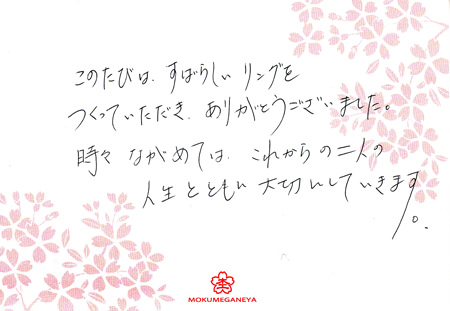 このたびは、すばらしいリングを
つくっていただき、ありがとうございました。
時々ながめては、これからの二人の
人生とともに大切にしていきます。
MOKUMEGANEYA